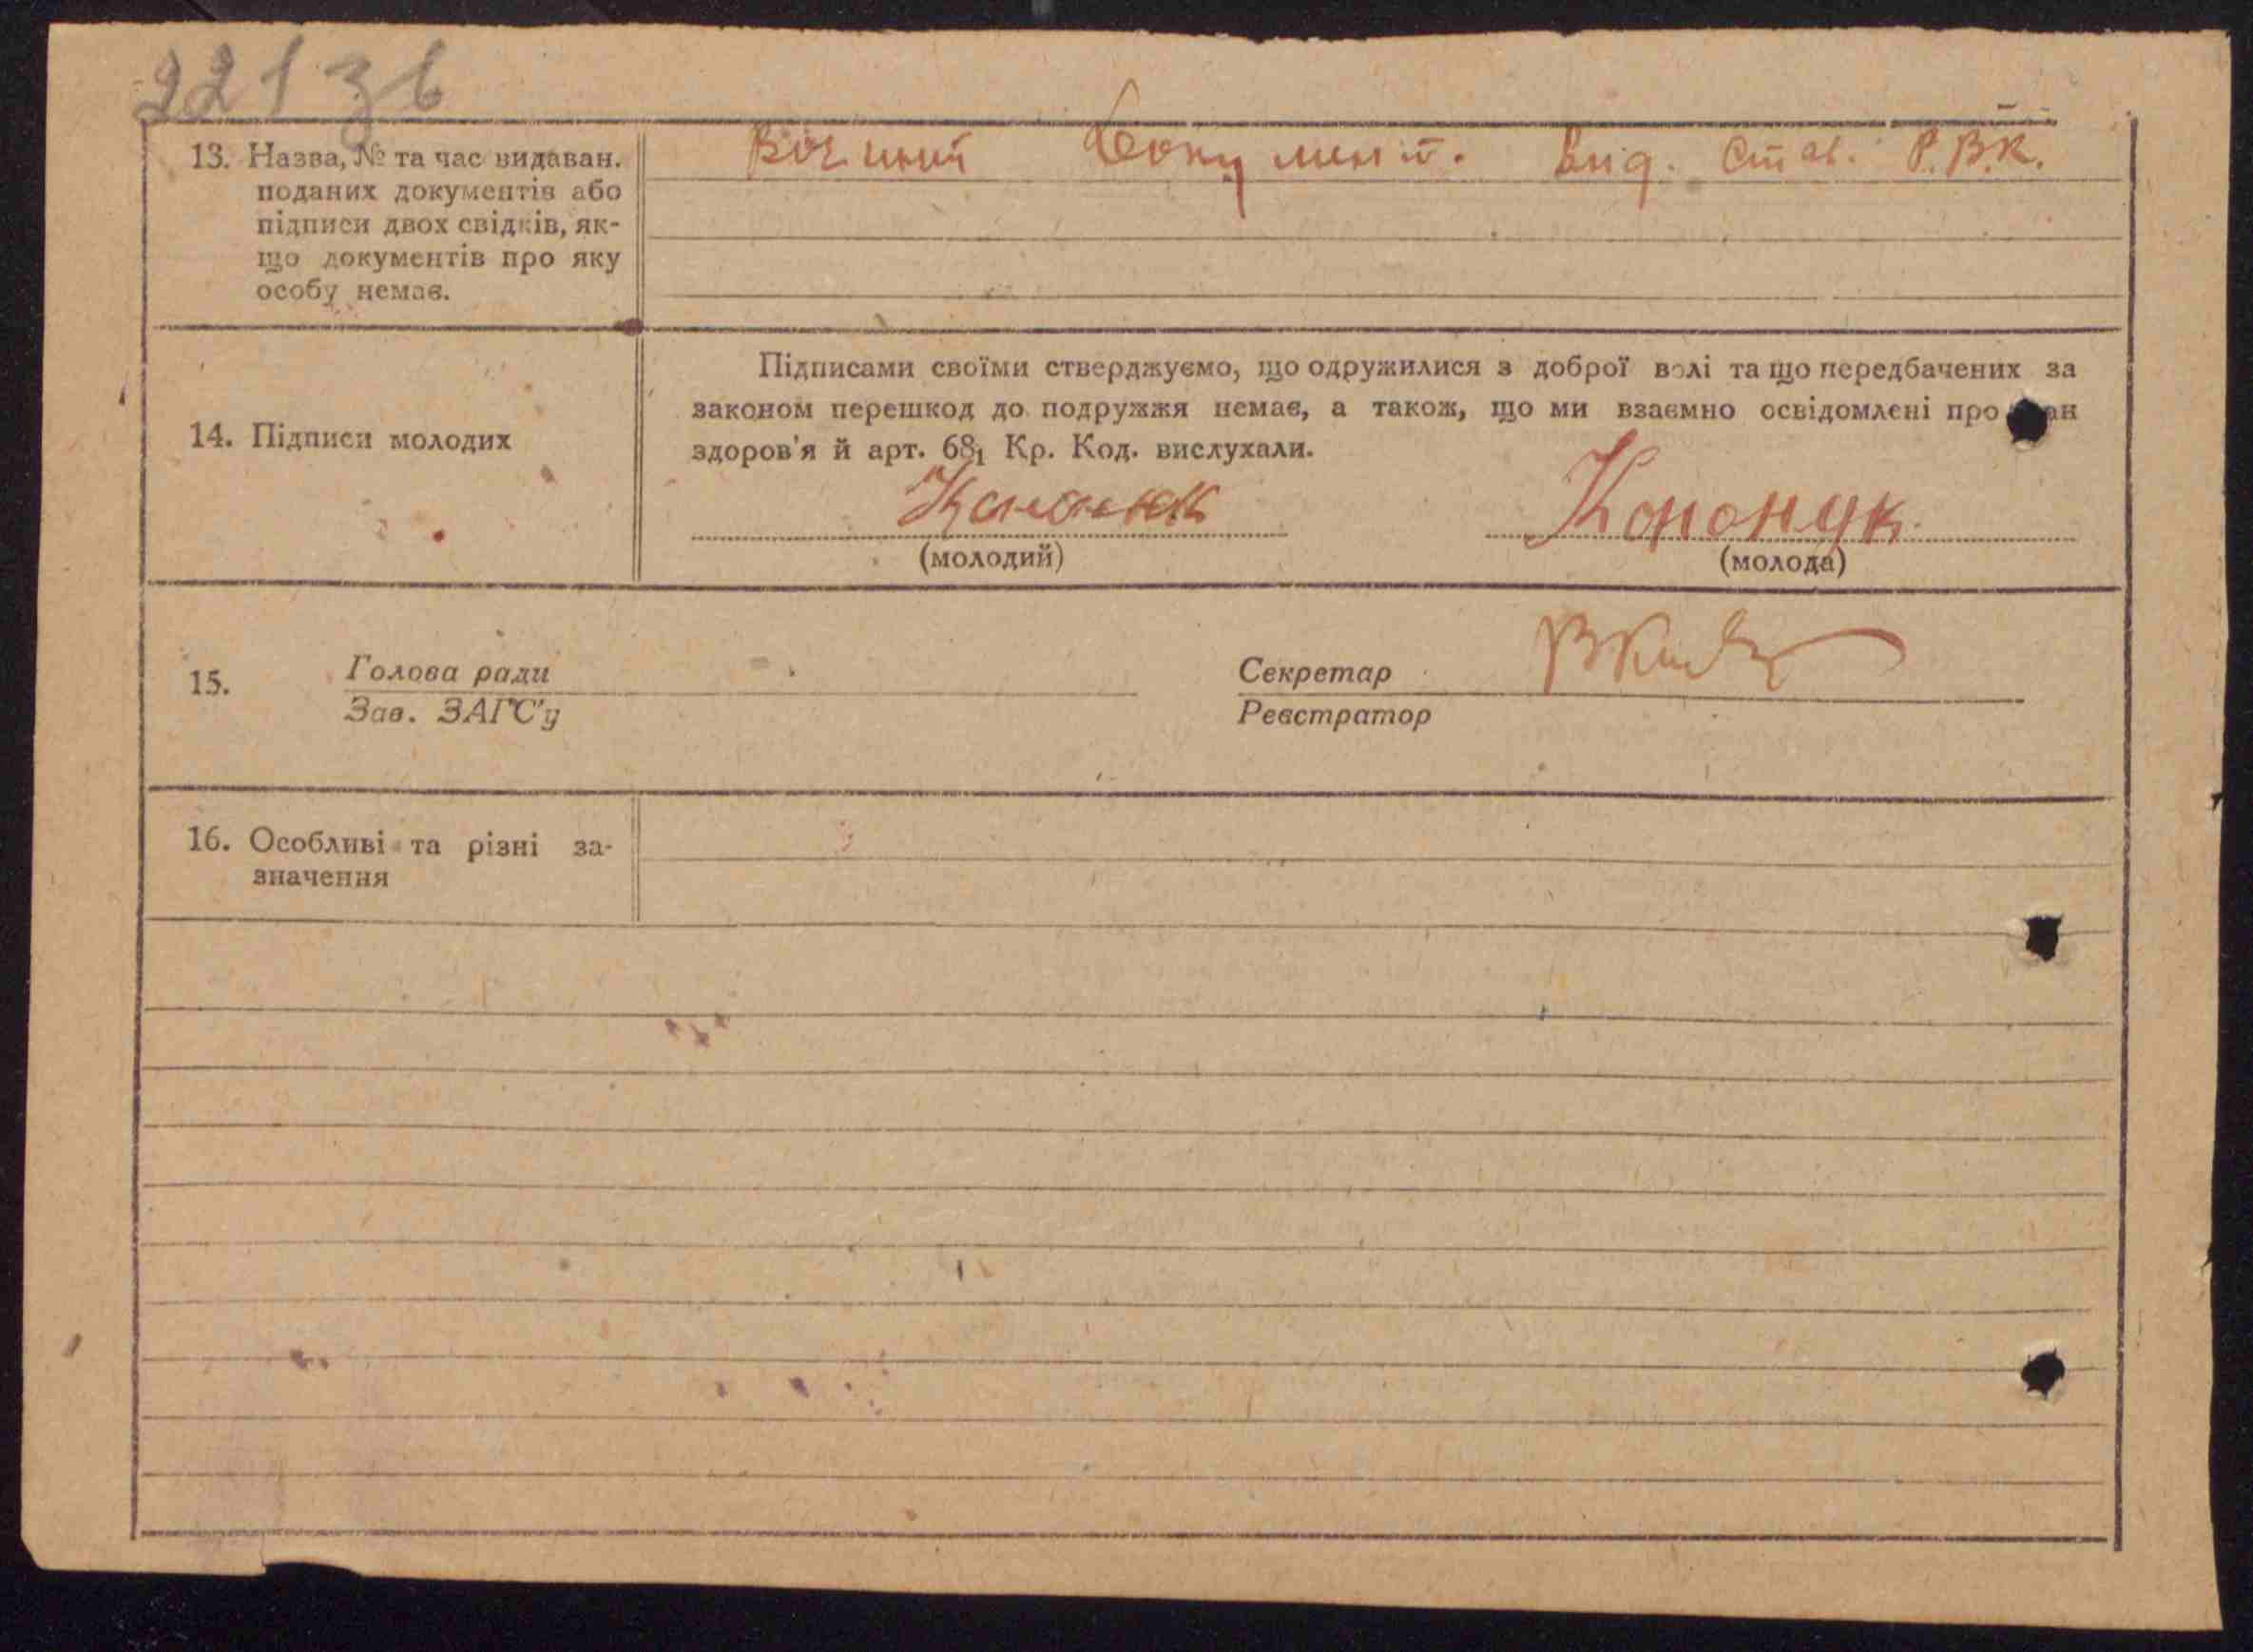 221 зв
13. Назва, № та час видаван.
поданих документів або
підписи двох свідків, як-
що документів про яку
особу немає.
документ. вид. Став. Р.В.К.
14. Підписи молодих
Підписами своїми стверджуємо, що одружилися з доброї волі та що передбачених за
законом перешкод до подружжя немає, а також, що ми взаємно освідомлені про
здоров'я й арт. 68₁ Кр. Код. вислухали.
Кононук
(молодий)
(молода)
15.
Голова ради
Зав. ЗАГС'у
Секретар
Реєстратор
16. Особливі та різні за-
значення